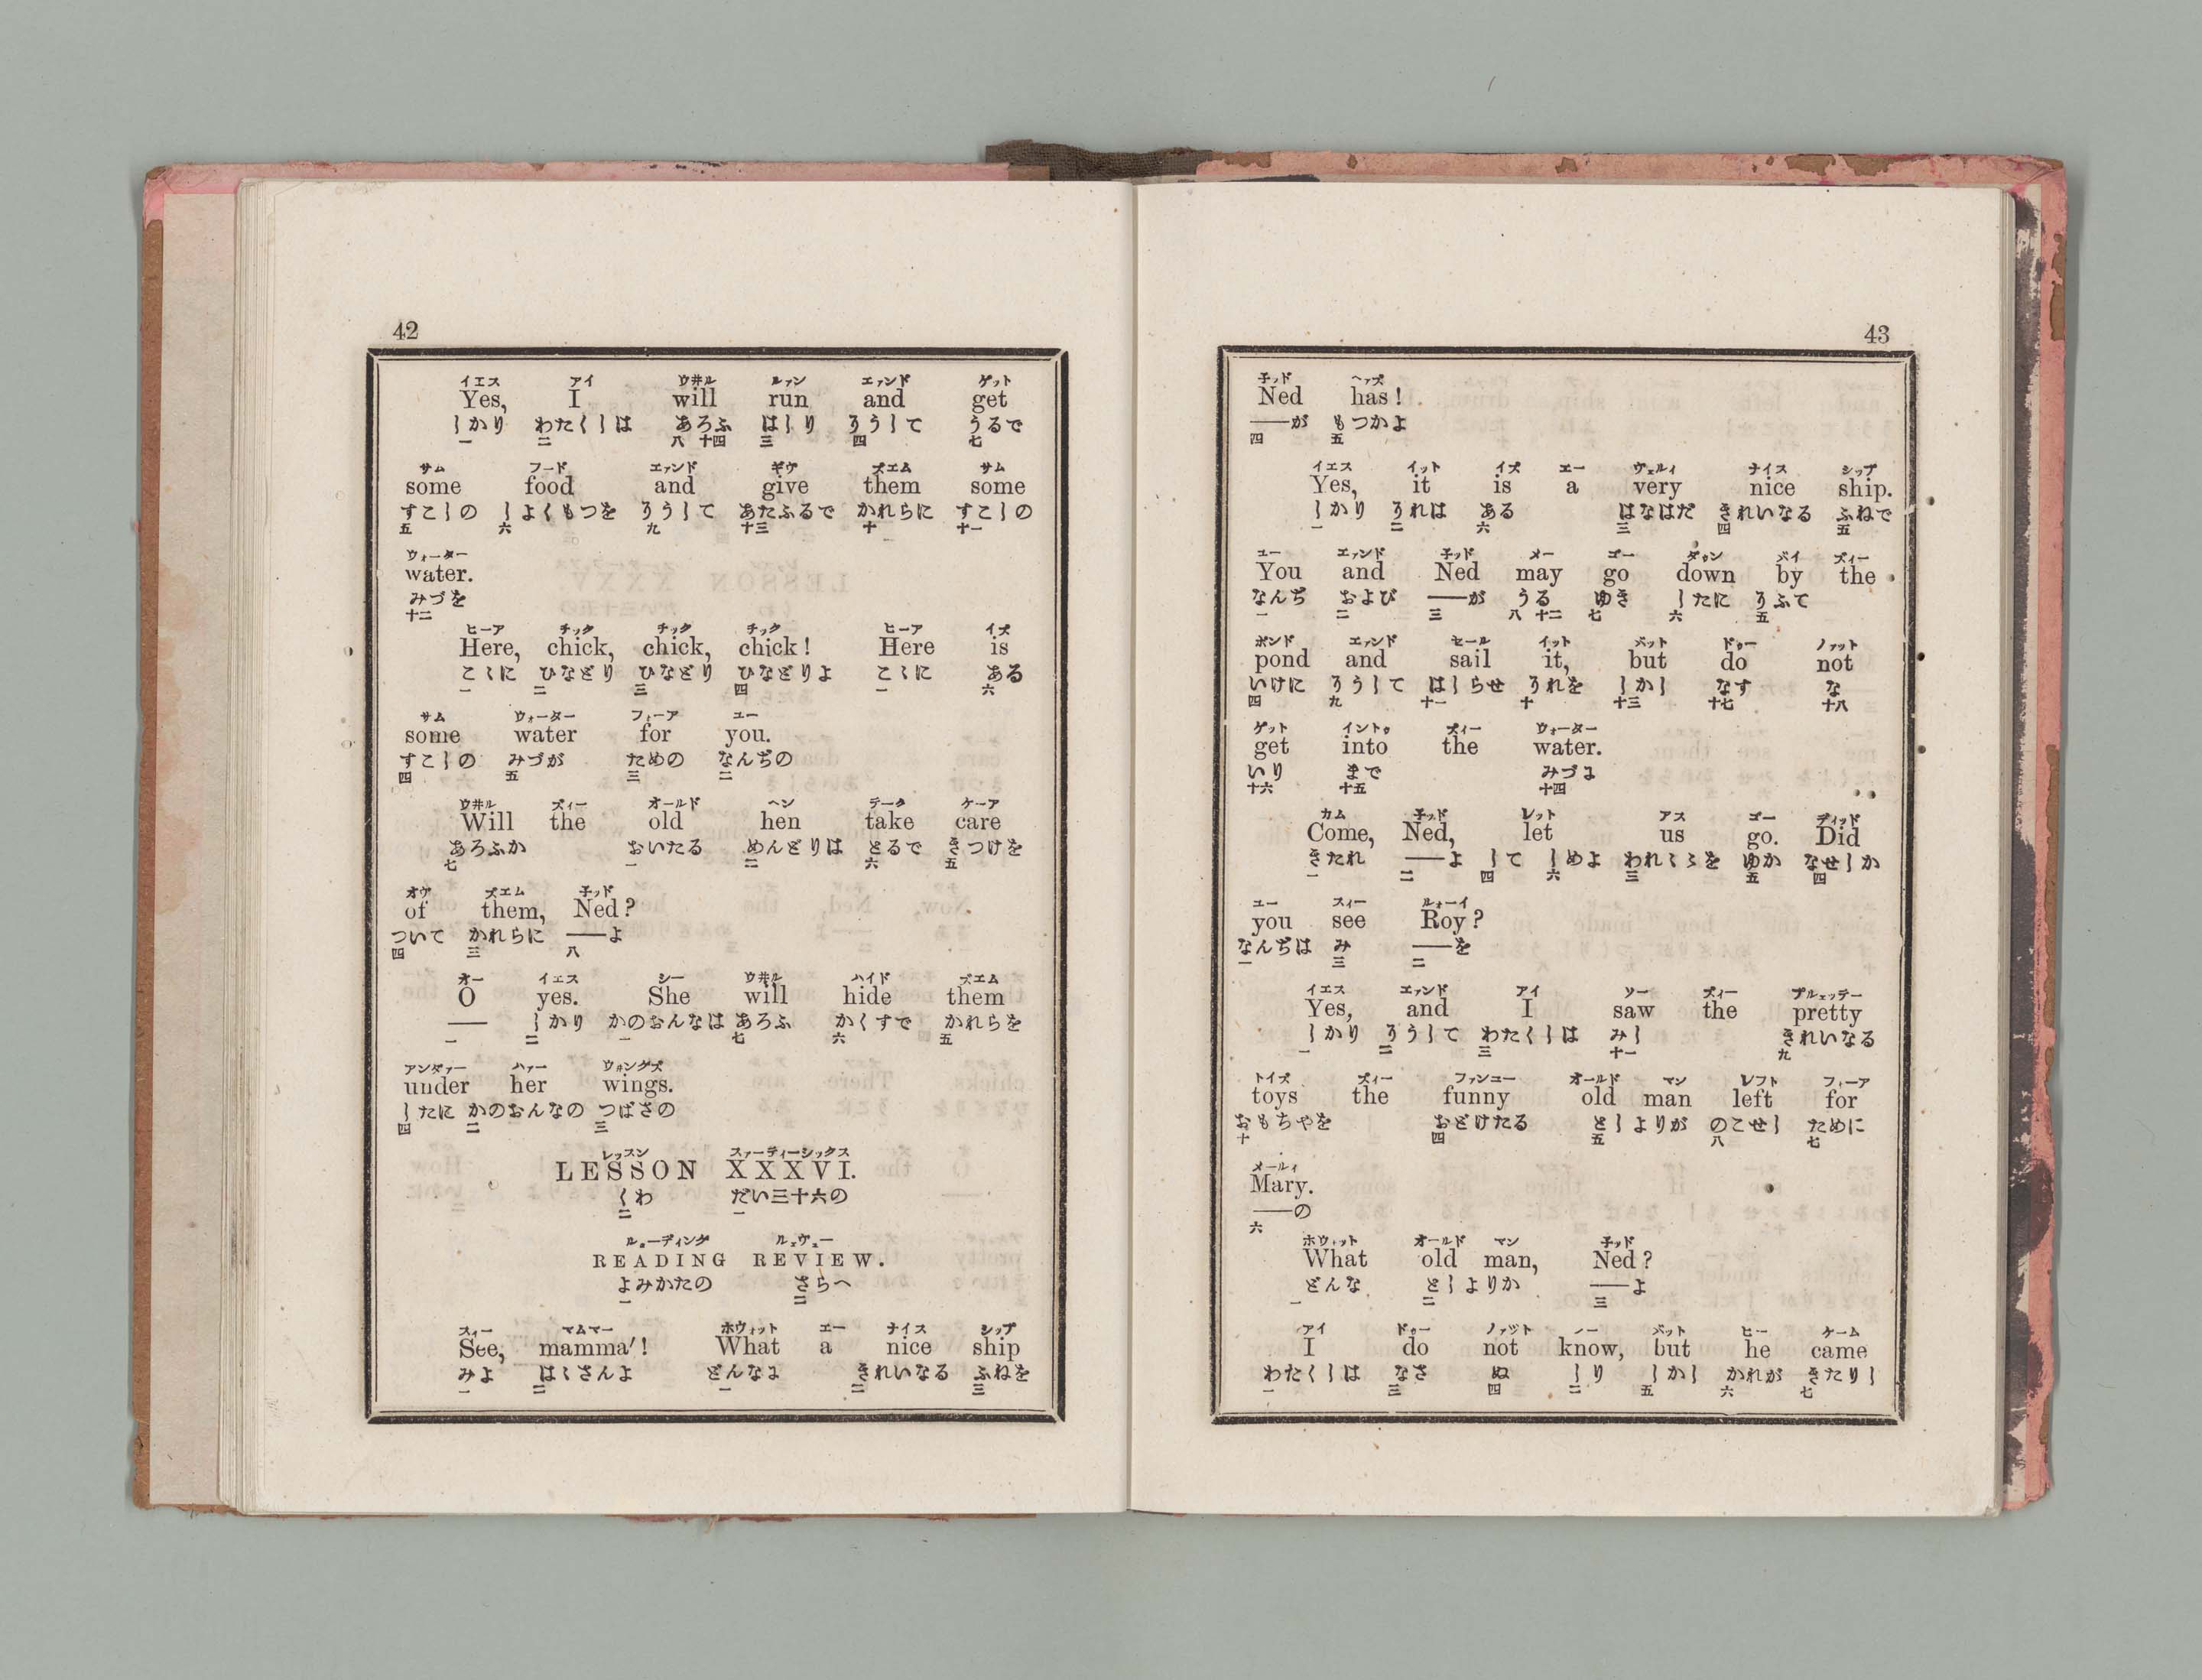 42
イエス アイ ウ井ル ルァン エァンド ゲット
Yes, I will run and get
しかり わたくしは あろふ はしり そうして うるで
一 二 八 十四 三 四 七
サム フード エァンド ギヴ ズエム サム
some food and give them some
すこしの しよくもつを そうして あたふるで かれらに すこしの
五 六 九 十三 十 十一
ウォーター
water.
みづを
十二
ヒーア チック チック チック ヒーア イズ
Here, chick, chick, chick! Here is
こゝに ひなどり ひなどり ひなどりよ こゝに ある
一 二 三 四 一 六
サム ウォーター フォーア ユー
some water for you.
すこしの みづが ための なんぢの
四 五 三 二
ウ井ル ズィー オールド ヘン テーク ケーア
Will the old hen take care
あろふか おいたる めんどりは とるで きつけを
七 一 二 六 五
オヴ ズエム 子ッド
of them, Ned?
ついて かれらに ——よ
四 三 八
オー イエス シー ウ井ル ハイド ズエム
O yes. She will hide them
—— しかり かのおんなは あろふ かくすで かれらを
一 二 一 七 六 五
アンダァー ハァー ウ井ングズ
under her wings.
したに かのおんなの つばさの
四 二 三
レッスン スァーティーシックス
LESSON XXXVI.
くわ だい三十六の
二 一
ルェーディング ルェヴュー
READING REVIEW.
よみかたの さらへ
一 二
スィー マムマー ホウォット エー ナイス シップ
See, mamma′! What a nice ship
みよ はゝさんよ どんなに きれいなる ふねを
一 二 一 二 三
43
子ッド ヘァズ
Ned has!
——が もつかよ
四 五
イエス イット イズ エー ウェルィ ナイス シップ
Yes, it is a very nice ship.
しかり それは ある はなはだ きれいなる ふねで
一 二 六 三 四 五
ユー エァンド 子ッド メー ゴー ダゥン バイ ズィー
You and Ned may go down by the
なんぢ および ——が うる ゆき したに そふて
一 二 三 八 十二 七 六 五
ポンド エァンド セール イット バット ドゥー ノァット
pond and sail it, but do not
いけに そうして はしらせ それを しかし なす な
四 九 十一 十 十三 十七 十八
ゲット イントゥ ズィー ウォーター
get into the water.
いり まで みづに
十六 十五 十四
カム 子ッド レット アス ゴー ディッド
Come, Ned, let us go. Did
きたれ ——よ して しめよ われゝゝを ゆか なせしか
一 二 四 六 三 五 四
ユー スィー ルォーイ
you see Roy?
なんぢは み ——を
一 三 二
イエス エァンド アイ ソー ズィー プルェッテー
Yes, and I saw the pretty
しかり そうして わたくしは みし きれいなる
一 二 三 十一 九
トイズ ズィー ファンユー オールド マン レフト フォーア
toys the funny old man left for
おもちやを おどけたる としよりが のこせし ために
十 四 五 八 七
メールィ
Mary.
——の
六
ホウォット オールド マン 子ッド
What old man, Ned?
どんな としよりか ——よ
一 二 三
アイ ドゥー ノァット ノー バット ヒー ケーム
I do not know, but he came
わたくしは なさ ぬ しり しかし かれが きたりし
一 三 四 二 五 六 七